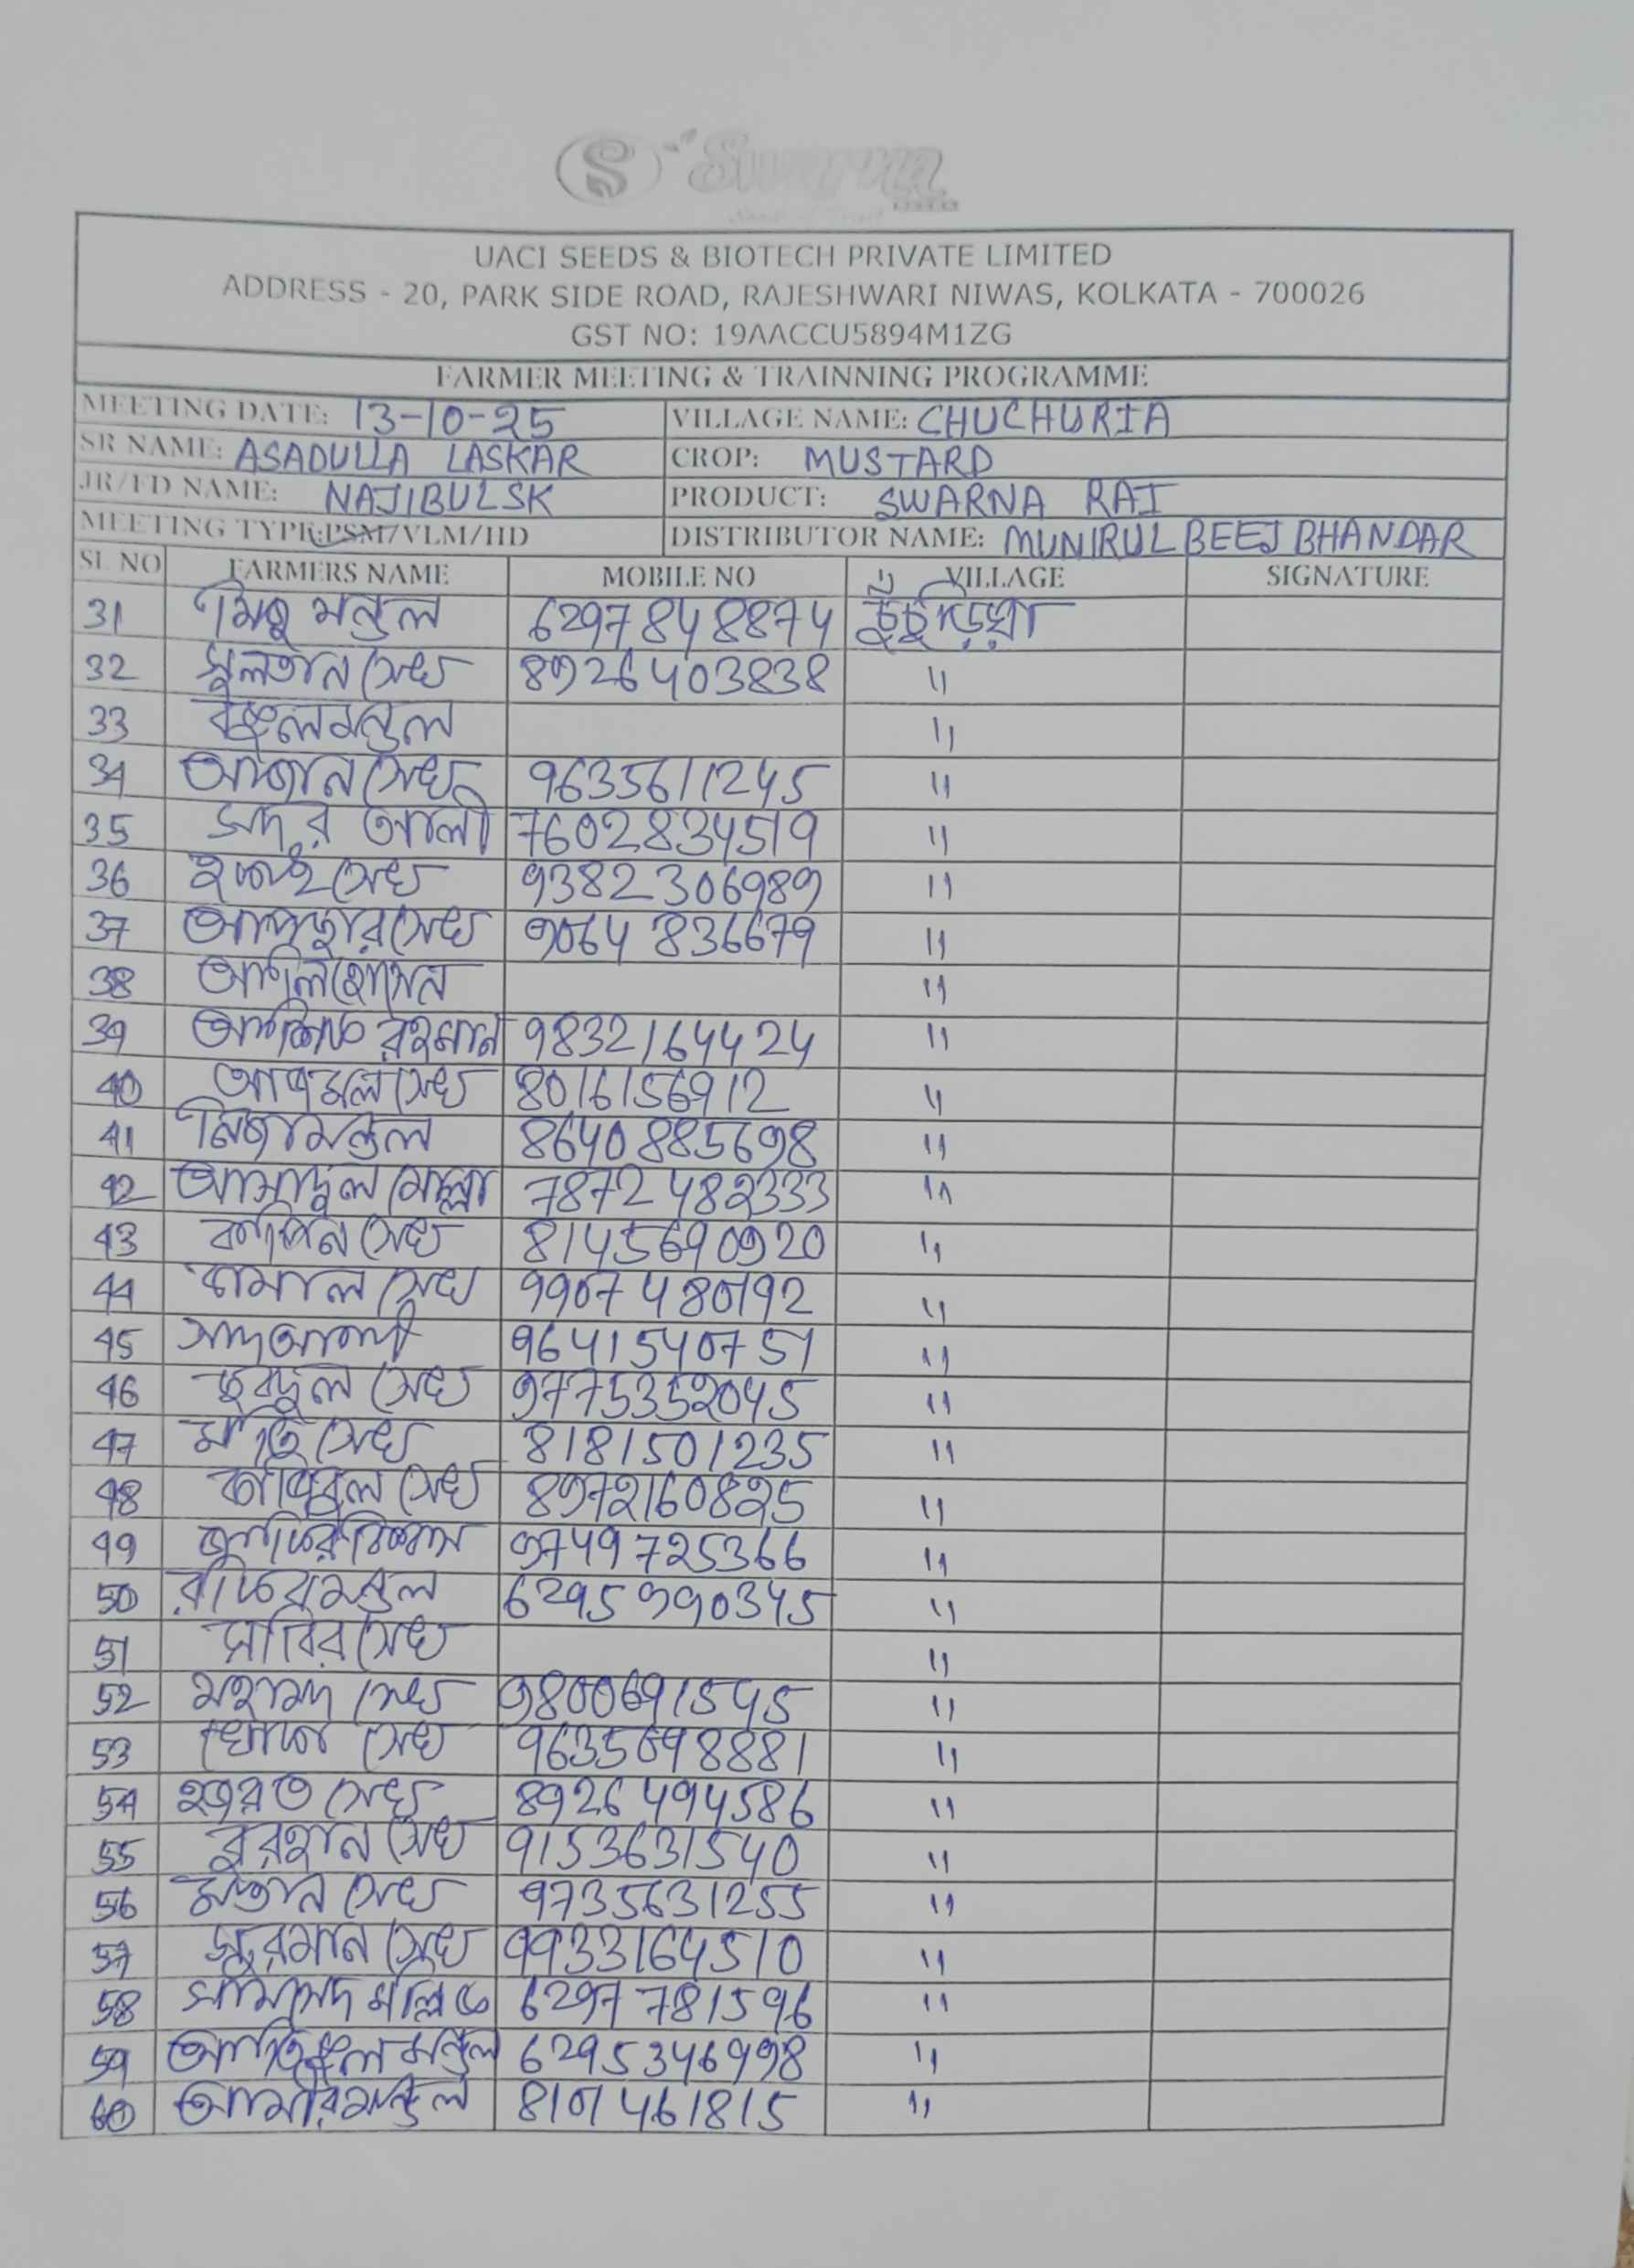 Swarna
UACI SEEDS & BIOTECH PRIVATE LIMITED
ADDRESS - 20, PARK SIDE ROAD, RAJESHWARI NIWAS, KOLKATA - 700026
GST NO: 19AACCU5894M1ZG
FARMER MEETING & TRAINNING PROGRAMME
MEETING DATE: 13-10-25 VILLAGE NAME: CHUCHURIA
SR NAME: ASADULLA LASKAR CROP: MUSTARD
JR/FD NAME: NAJIBUL SK PRODUCT: SWARNA RAI
MEETING TYPE: PSM/VLM/HD DISTRIBUTOR NAME: MUNIRUL BEEJ BHANDAR
SL NO FARMERS NAME MOBILE NO VILLAGE SIGNATURE
31 মিঠু মন্ডল 6297848874 চুঁচুড়িয়া
32 সুলতান সেখ 8926403838 "
33 মন্ডল "
34 সেখ 9635611245 "
35 সদর আলী 7602834519 "
36 সেখ 9382306989 "
37 সেখ 9064836679 "
38 আলি হোসেন "
39 রহমান 9832164424 "
40 সেখ 8016156912 "
41 মিজা মন্ডল 8640885698 "
42 আসাদুল মোল্লা 7872482333 "
43 সেখ 8145690920 "
44 জামাল সেখ 9907480192 "
45 9641540751 "
46 সেখ 9775352045 "
47 মতি সেখ 8181501235 "
48 সেখ 8972160825 "
49 বিশ্বাস 9749725366 "
50 মন্ডল 6295990345 "
51 সাবির সেখ "
52 মহামদ সেখ 9800691545 "
53 খোকা সেখ 9635698881 "
54 হজরত সেখ 8926494586 "
55 বুরহান সেখ 9153631540 "
56 মস্তান সেখ 9735631255 "
57 সেখ 9933164510 "
58 সামসেদ মল্লিক 6297781596 "
59 মন্ডল 6295346998 "
60 আমীর মন্ডল 8101461815 "